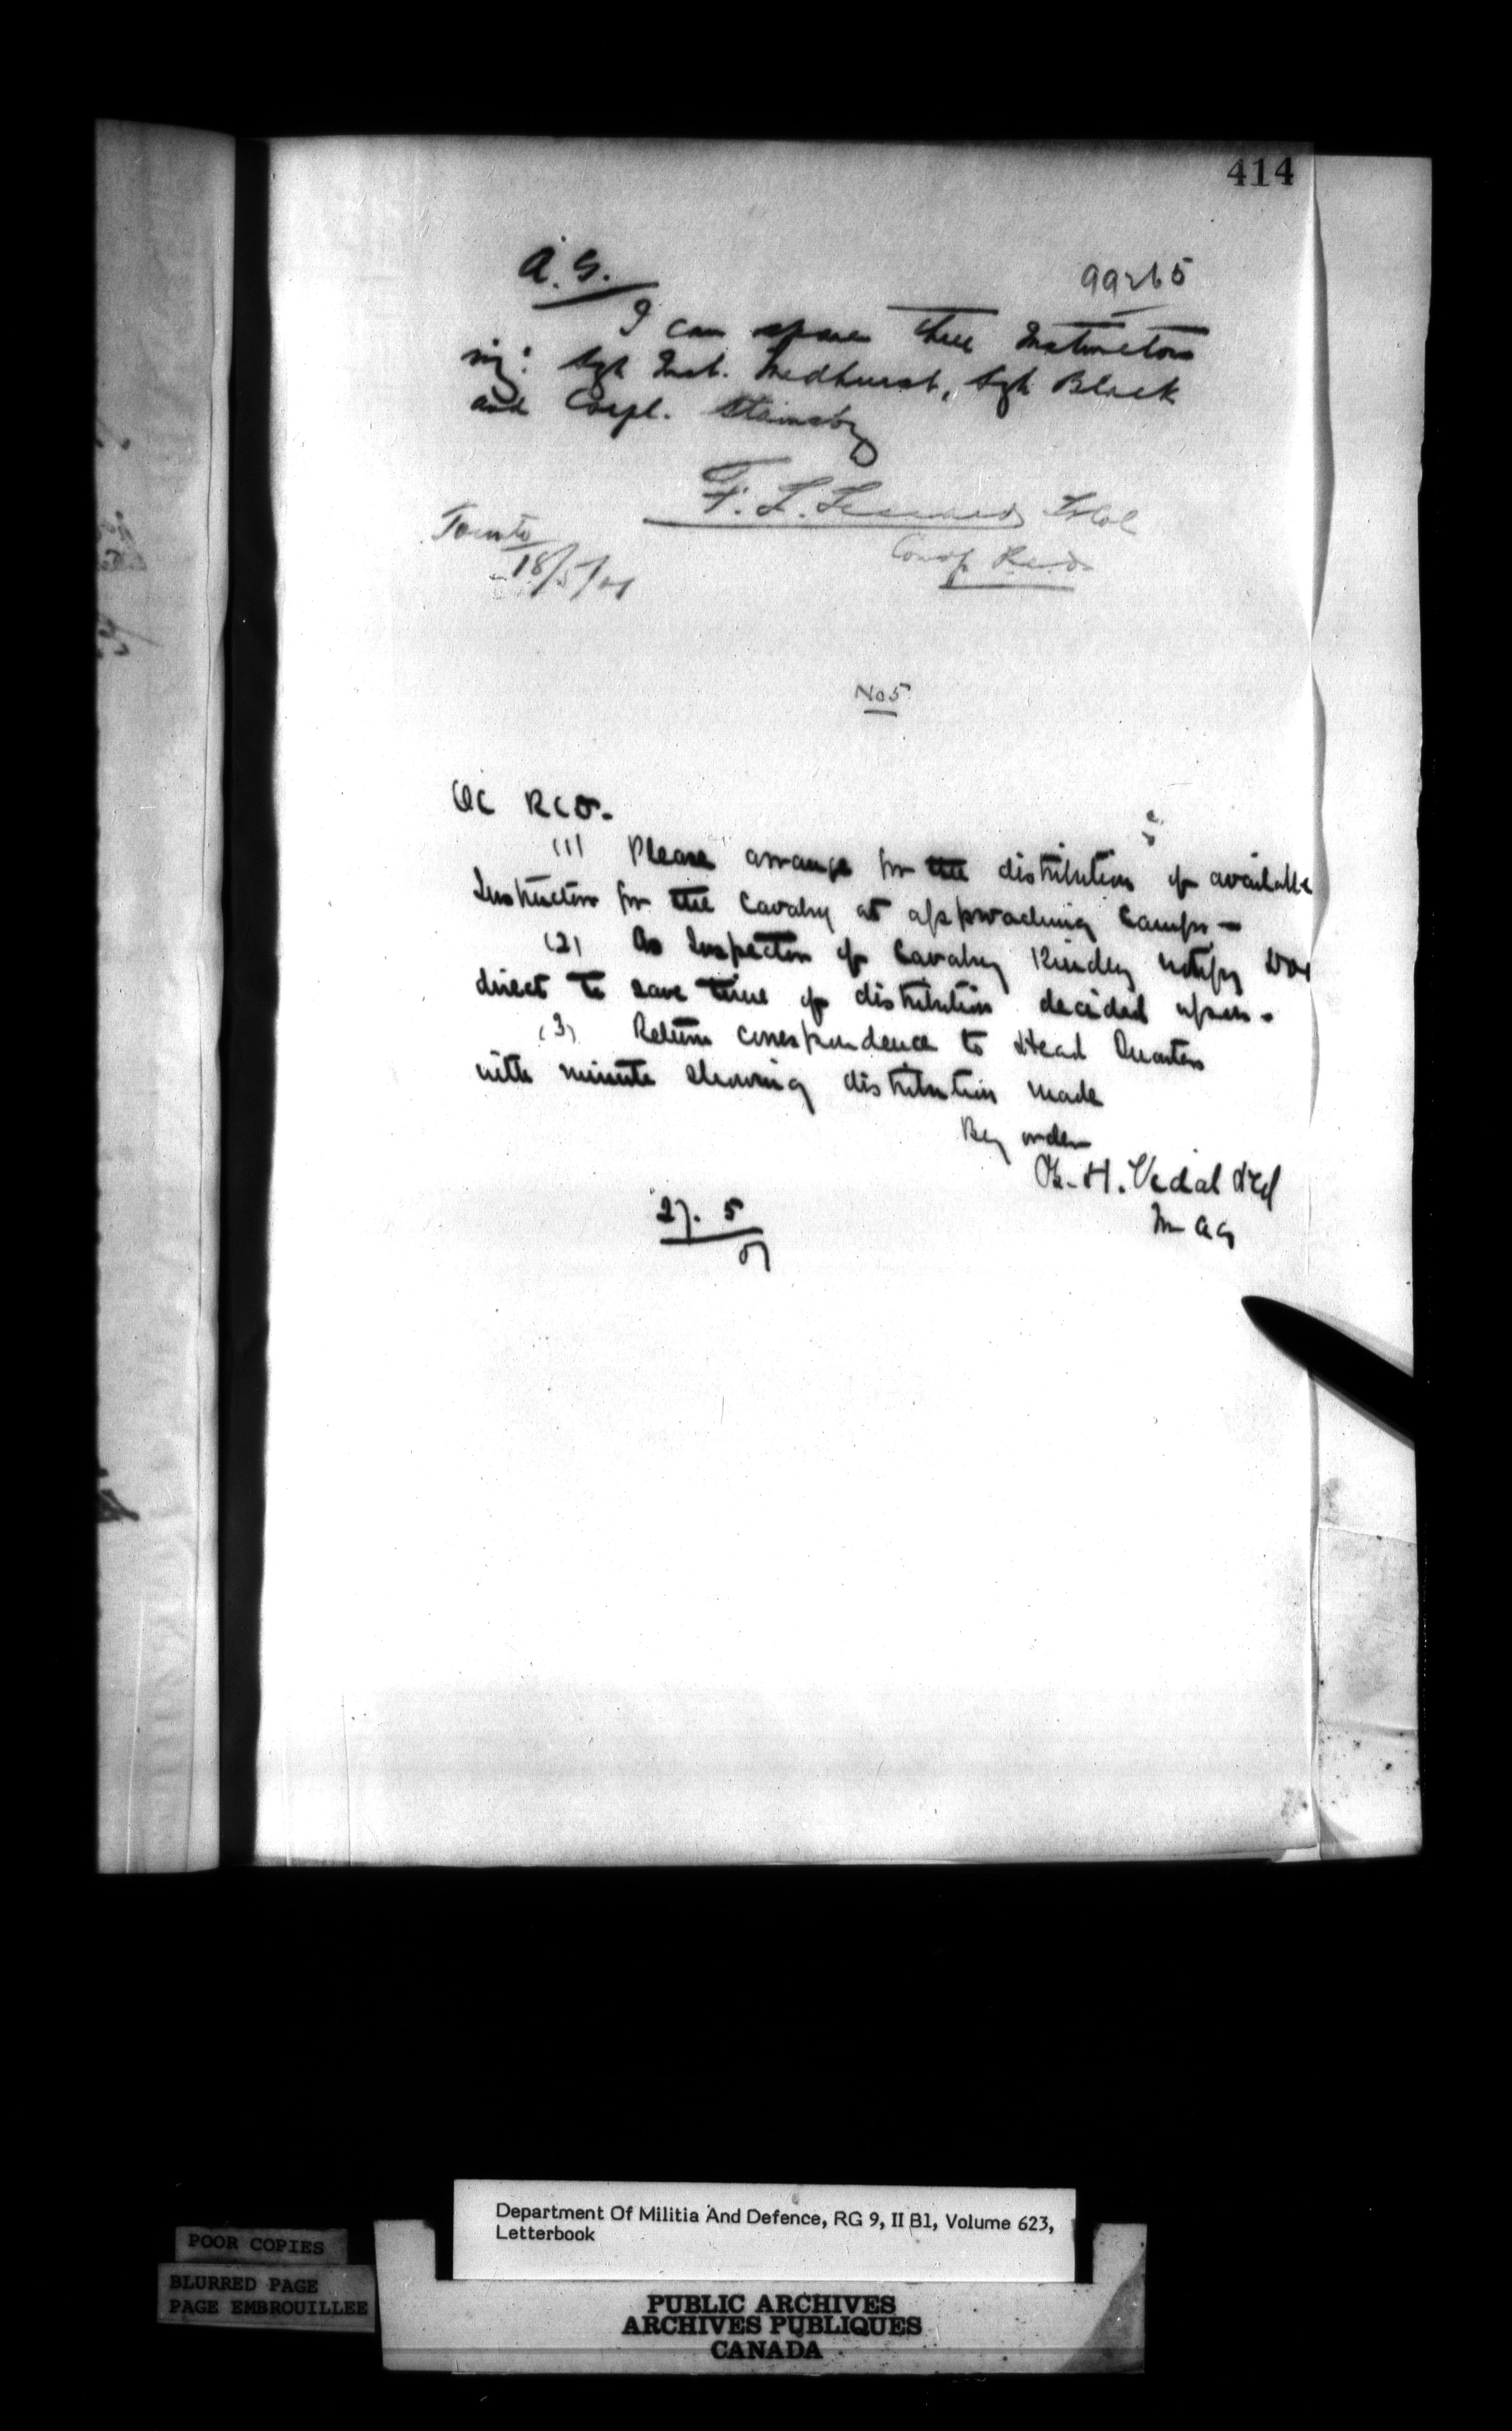 414
A.G.
99265
I can spare three Instructors
viz: Sgt Inst. Medhurst, Sgt Black
and Corpl. Stainsby
F. L. Lessard Lt Col
Toronto
18/5/01
No 5
OC RCD.
(1) Please arrange for the distribution of available
Instructors for the Cavalry at approaching Camps -
(2) As Inspector of Cavalry kindly notify DOC
direct to save time of distribution decided upon.
(3) Return correspondence to Head Quarters
with minute showing distribution made
By order
B. H. Vidal Lt Col
AAG
27. 5
01
Department Of Militia And Defence, RG 9, II B1, Volume 623,
Letterbook
POOR COPIES
BLURRED PAGE
PAGE EMBROUILLEE
PUBLIC ARCHIVES
ARCHIVES PUBLIQUES
CANADA